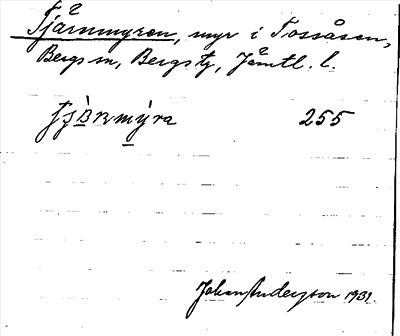 Tjårnmyren, myr i Fossåsen,
Bergs sn, Bergs tg, Jämtl. l.
255
Johan Anderzson 1931.